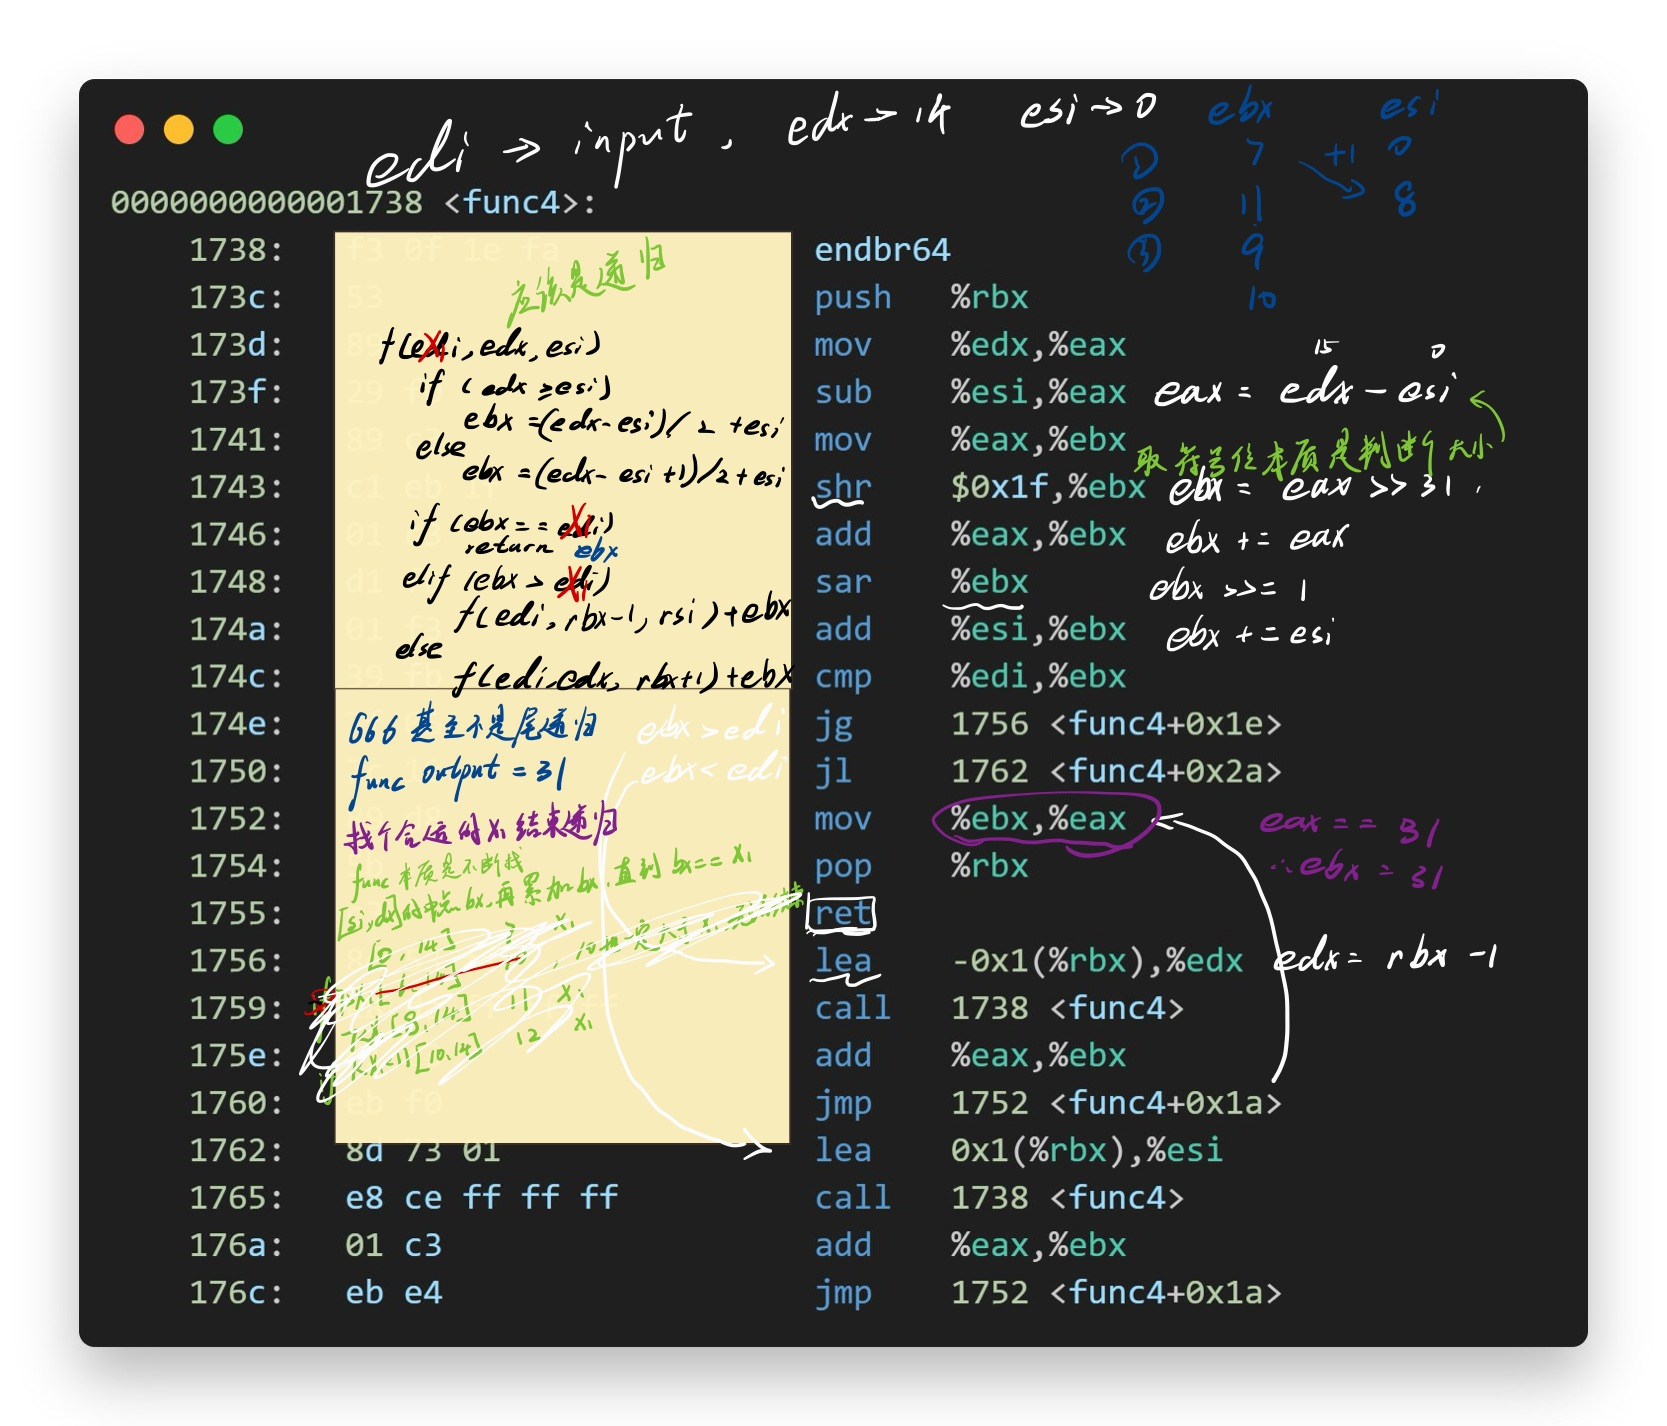 edi → input, edx → 14 esi → 0
ebx esi
① 7 +1 0
② 11 8
③ 9
10
0000000000001738 <func4>:
1738: f3 0f 1e fa endbr64
173c: 53 push %rbx
173d: 89 mov %edx,%eax
173f: 29 sub %esi,%eax
1741: 89 mov %eax,%ebx
1743: c1 eb 1f shr $0x1f,%ebx
1746: 01 add %eax,%ebx
1748: d1 sar %ebx
174a: 01 add %esi,%ebx
174c: 39 fb cmp %edi,%ebx
174e: jg 1756 <func4+0x1e>
1750: jl 1762 <func4+0x2a>
1752: mov %ebx,%eax
1754: pop %rbx
1755: ret
1756: lea -0x1(%rbx),%edx
1759: call 1738 <func4>
175e: add %eax,%ebx
1760: eb f0 jmp 1752 <func4+0x1a>
1762: 8d 73 01 lea 0x1(%rbx),%esi
1765: e8 ce ff ff ff call 1738 <func4>
176a: 01 c3 add %eax,%ebx
176c: eb e4 jmp 1752 <func4+0x1a>
应该是递归
f(edi,edx,esi)
if (edx≥esi)
ebx =(edx-esi)/2 +esi
else
ebx =(edx-esi+1)/2+esi
if (ebx==edi)
return ebx
elif (ebx > edi)
f(edi,rbx-1,rsi)+ebx
else
f(edi,edx,rbx+1)+ebx
666 甚至不是尾递归
func output = 31
找个合适的x₁结束递归
func 本质是不断找
[si,dx]的中点bx,再累加bx,直到bx==x₁
[0,14] 7 x₁
[8,14] 11 x₁
[10,14] 12 x₁
ebx>edi
ebx<edi
15 0
eax = edx - esi
取符号位本质是判断个大小
ebx = eax >> 31
ebx += eax
ebx >>= 1
ebx += esi
eax == 31
∴ebx = 31
edx = rbx -1